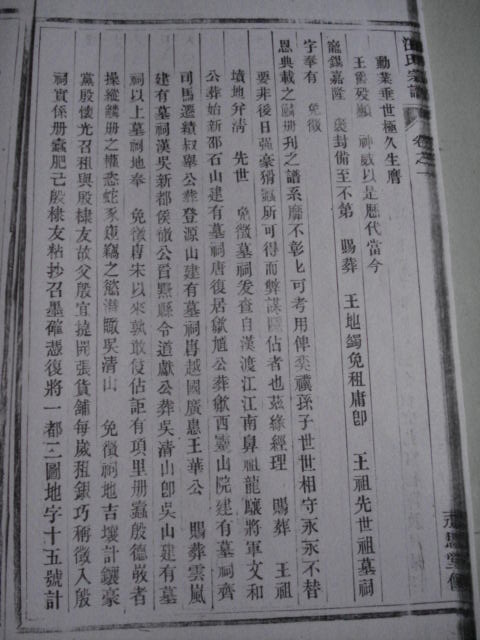 汪氏宗譜
卷之一
勳業垂世極久生膺
王爵歿顯 神威以是歷代當今
寵錫嘉隆 褒封備至不第 賜葬 王地蠲免租庸卽 王祖先世祖墓祠
宇奉有 免徵
恩典載之麟册刋之譜系靡不彰〻可考用俾奕禩孫子世世相守永永不替
要非後日强豪猾蠹所可得而弊謀隱佔者也茲緣經理 賜葬 王祖
墳地弁清 先世 免徵墓祠发查自漢渡江江南鼻祖龍驤將軍文和
公葬始新邵石山建有墓祠唐復居歙尵公葬歙西靈山院建有墓祠齊
司馬遷績叔舉公葬登源山建有墓祠曁越國廣惠王華公 賜葬雲嵐
建有墓祠漢吳新都侯徹公曾黟縣令道獻公葬吳清山卽吳山建有墓
祠以上墓祠地奉 免徵曆宋以來孰敢侵佔詎有項里册蠹殷德敭者
操縱麟册之權恣蛇豕窺竊之慾潛瞰吳清山 免徵祠地吉壤計鑽豪
黨殷懷光召租與殷棣友故父殷宜撓開張貨鋪每歲租銀巧稱徵入殷
祠實係册蠹肥己殷棣友粘抄召墨確憑復將一都三圖地字十五號計